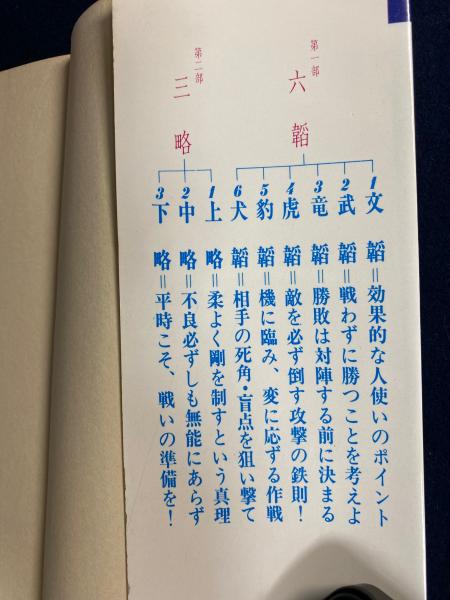 第一部
六韜
1 文韜＝効果的な人使いのポイント
2 武韜＝戦わずに勝つことを考えよ
3 竜韜＝勝敗は対陣する前に決まる
4 虎韜＝敵を必ず倒す攻撃の鉄則！
5 豹韜＝機に臨み、変に応ずる作戦
6 犬韜＝相手の死角・盲点を狙い撃て
第二部
三略
1 上略＝柔よく剛を制すという真理
2 中略＝不良必ずしも無能にあらず
3 下略＝平時こそ、戦いの準備を！